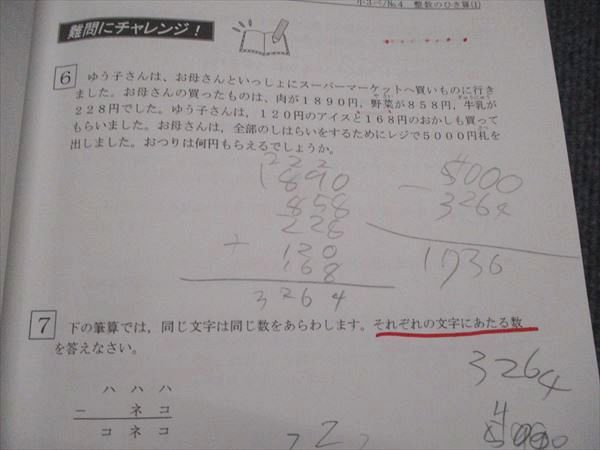 小3ベ/No.4 整数のひき算(1)
難問にチャレンジ!
6 ゆう子さんは、お母さんといっしょにスーパーマーケットへ買いものに行き
ました。お母さんの買ったものは、肉が1890円、野菜が858円、牛乳が
228円でした。ゆう子さんは、120円のアイスと168円のおかしも買って
もらいました。お母さんは、全部のしはらいをするためにレジで5000円札
を出しました。おつりは何円もらえるでしょうか。
222
1890
858
228
+ 120
168
3264
4
5000
- 3264
1736
7 下の筆算では、同じ文字は同じ数をあらわします。それぞれの文字にあたる数
を答えなさい。
ハ ハ ハ
- ネ コ
コ ネ コ
3264